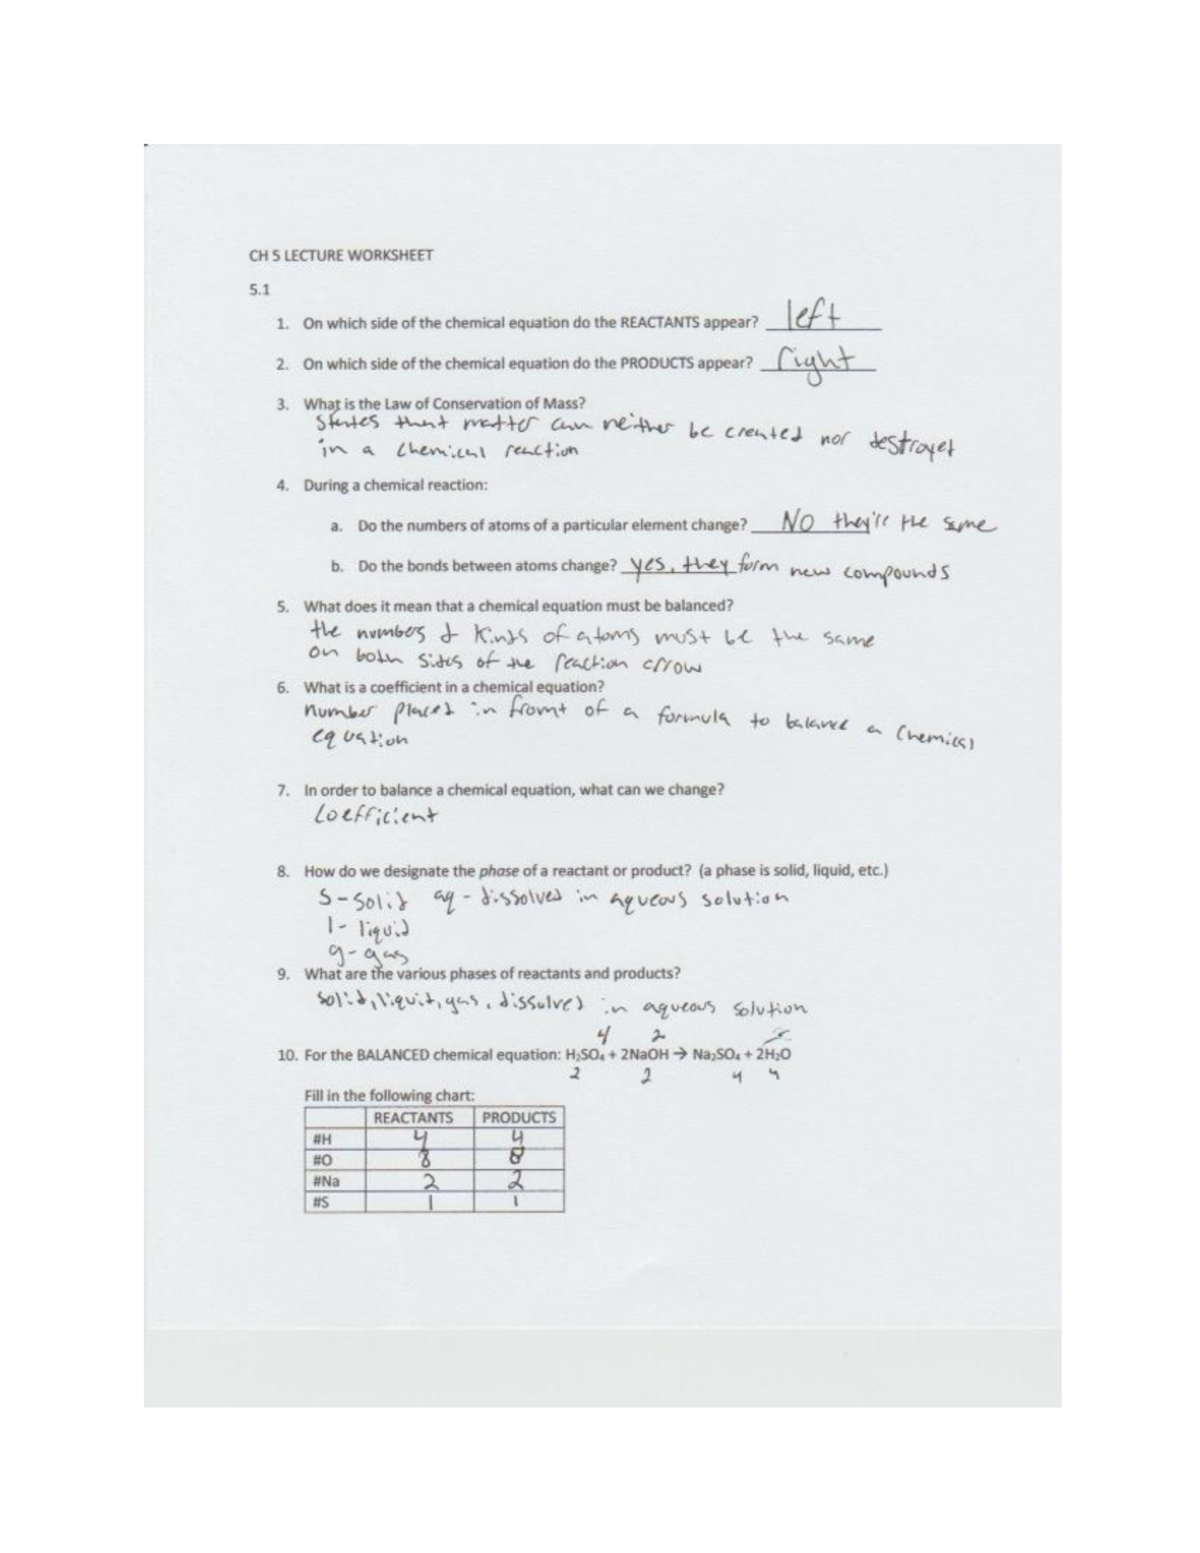 CH 5 LECTURE WORKSHEET
5.1
1. On which side of the chemical equation do the REACTANTS appear? left
2. On which side of the chemical equation do the PRODUCTS appear? right
3. What is the Law of Conservation of Mass?
states that matter can neither be created nor destroyed
in a chemical reaction
4. During a chemical reaction:
a. Do the numbers of atoms of a particular element change? NO they're the same
b. Do the bonds between atoms change? yes, they form new compounds
5. What does it mean that a chemical equation must be balanced?
the numbers & kinds of atoms must be the same
on both sides of the reaction arrow
6. What is a coefficient in a chemical equation?
number placed in fromt of a formula to balance a chemical
equation
7. In order to balance a chemical equation, what can we change?
Coefficient
8. How do we designate the phase of a reactant or product? (a phase is solid, liquid, etc.)
S-solid aq - dissolved in aqueous solution
l- liquid
g- gas
9. What are the various phases of reactants and products?
solid, liquid, gas, dissolved in aqueous solution
4 2
10. For the BALANCED chemical equation: H₂SO₄ + 2NaOH → Na₂SO₄ + 2H₂O
2 2 4 4
Fill in the following chart:
REACTANTS PRODUCTS
#H 4 4
#O 8 8
#Na 2 2
#S 1 1